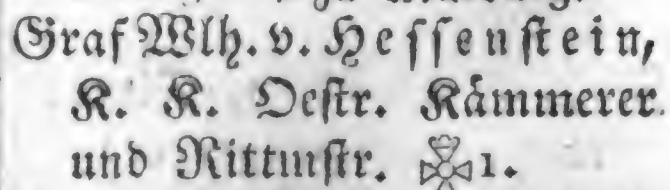 Graf Wlh. v. Hessenstein,
K. K. Oestr. Kämmerer
und Rittmstr. ✠1.